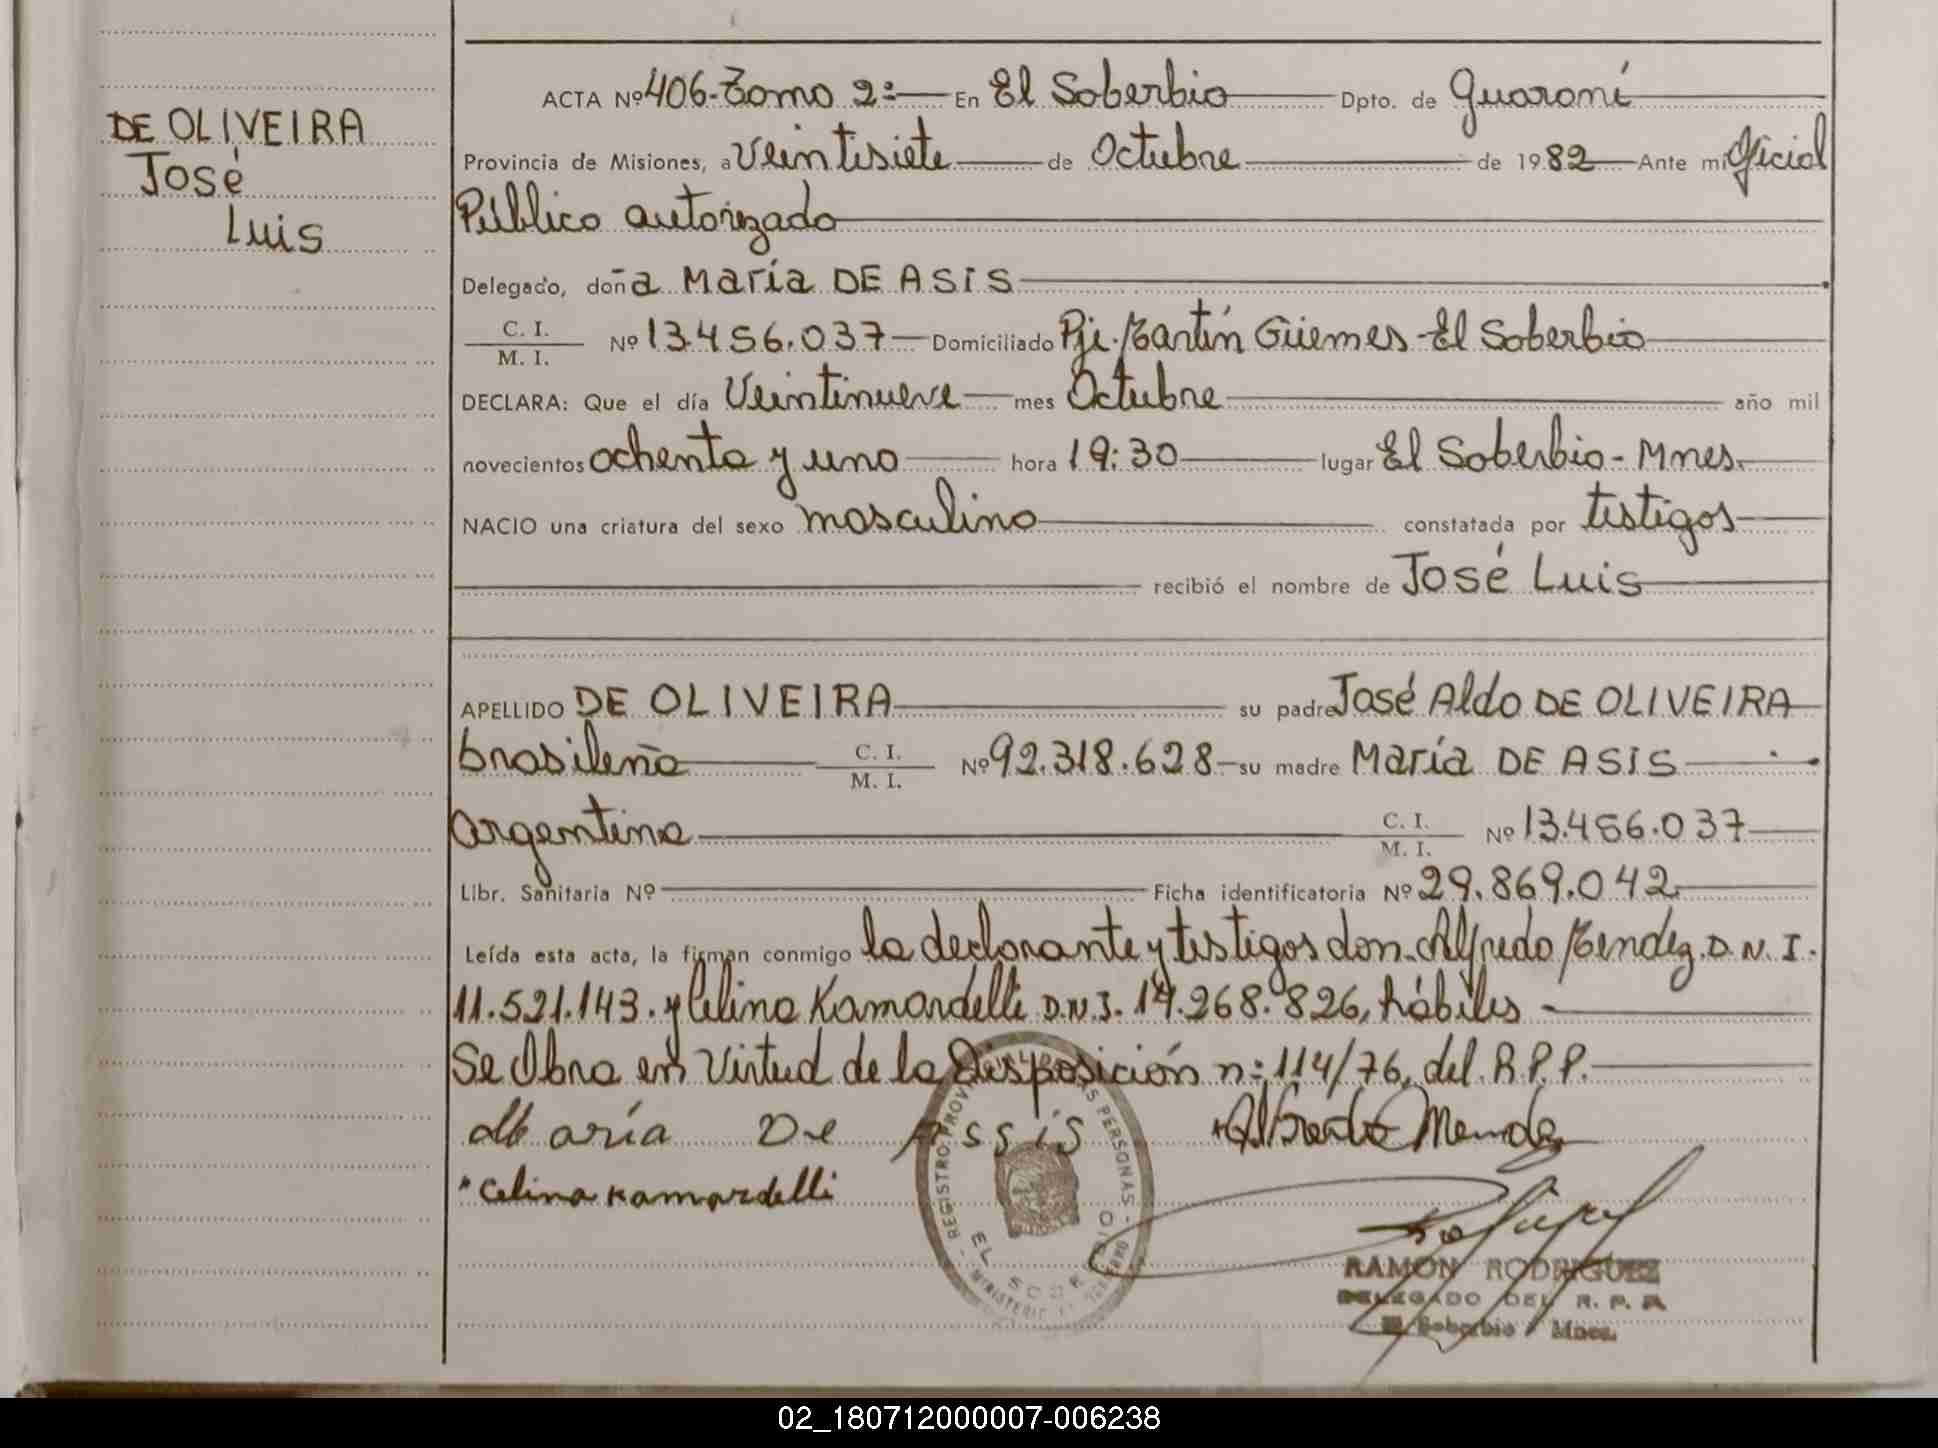 DE OLIVEIRA
José
Luis
ACTA Nº 406-Tomo 2º En El Soberbio Dpto. de Guaraní
Provincia de Misiones, a Veintisiete de Octubre de 1982 Ante mi Oficial
Público autorizado
Delegado, doña María DE ASIS
C. I.
M. I. Nº 13.456.037 Domiciliado Pje. Martín Güemes-El Soberbio
DECLARA: Que el día Veintinueve mes Octubre año mil
novecientos ochenta y uno hora 19:30 lugar El Soberbio - Mnes.
NACIO una criatura del sexo masculino constatada por testigos
recibió el nombre de José Luis
APELLIDO DE OLIVEIRA su padre José Aldo DE OLIVEIRA
brasileña C. I.
M. I. Nº 92.318.628 su madre María DE ASIS
argentina C. I.
M. I. Nº 13.456.037
Libr. Sanitaria Nº Ficha identificatoria Nº 29.869.042
Leída esta acta, la firman conmigo la declarante y testigos don. Alfredo Mendez. D. N. I.
11.521.143. y Celina Kamardelli D.N.I. 14.268.826, hábiles
Se Obra en Virtud de la Disposición n: 114/76, del. R.P.P.
María De Assis Alfredo Mendez
Celina Kamardelli
REGISTRO PROVINCIAL DE LAS PERSONAS
EL SOBERBIO
MINISTERIO DE GOBIERNO
RAMON RODRIGUEZ
DELEGADO DEL R. P. P.
El Soberbio - Mnes.
02_180712000007-006238